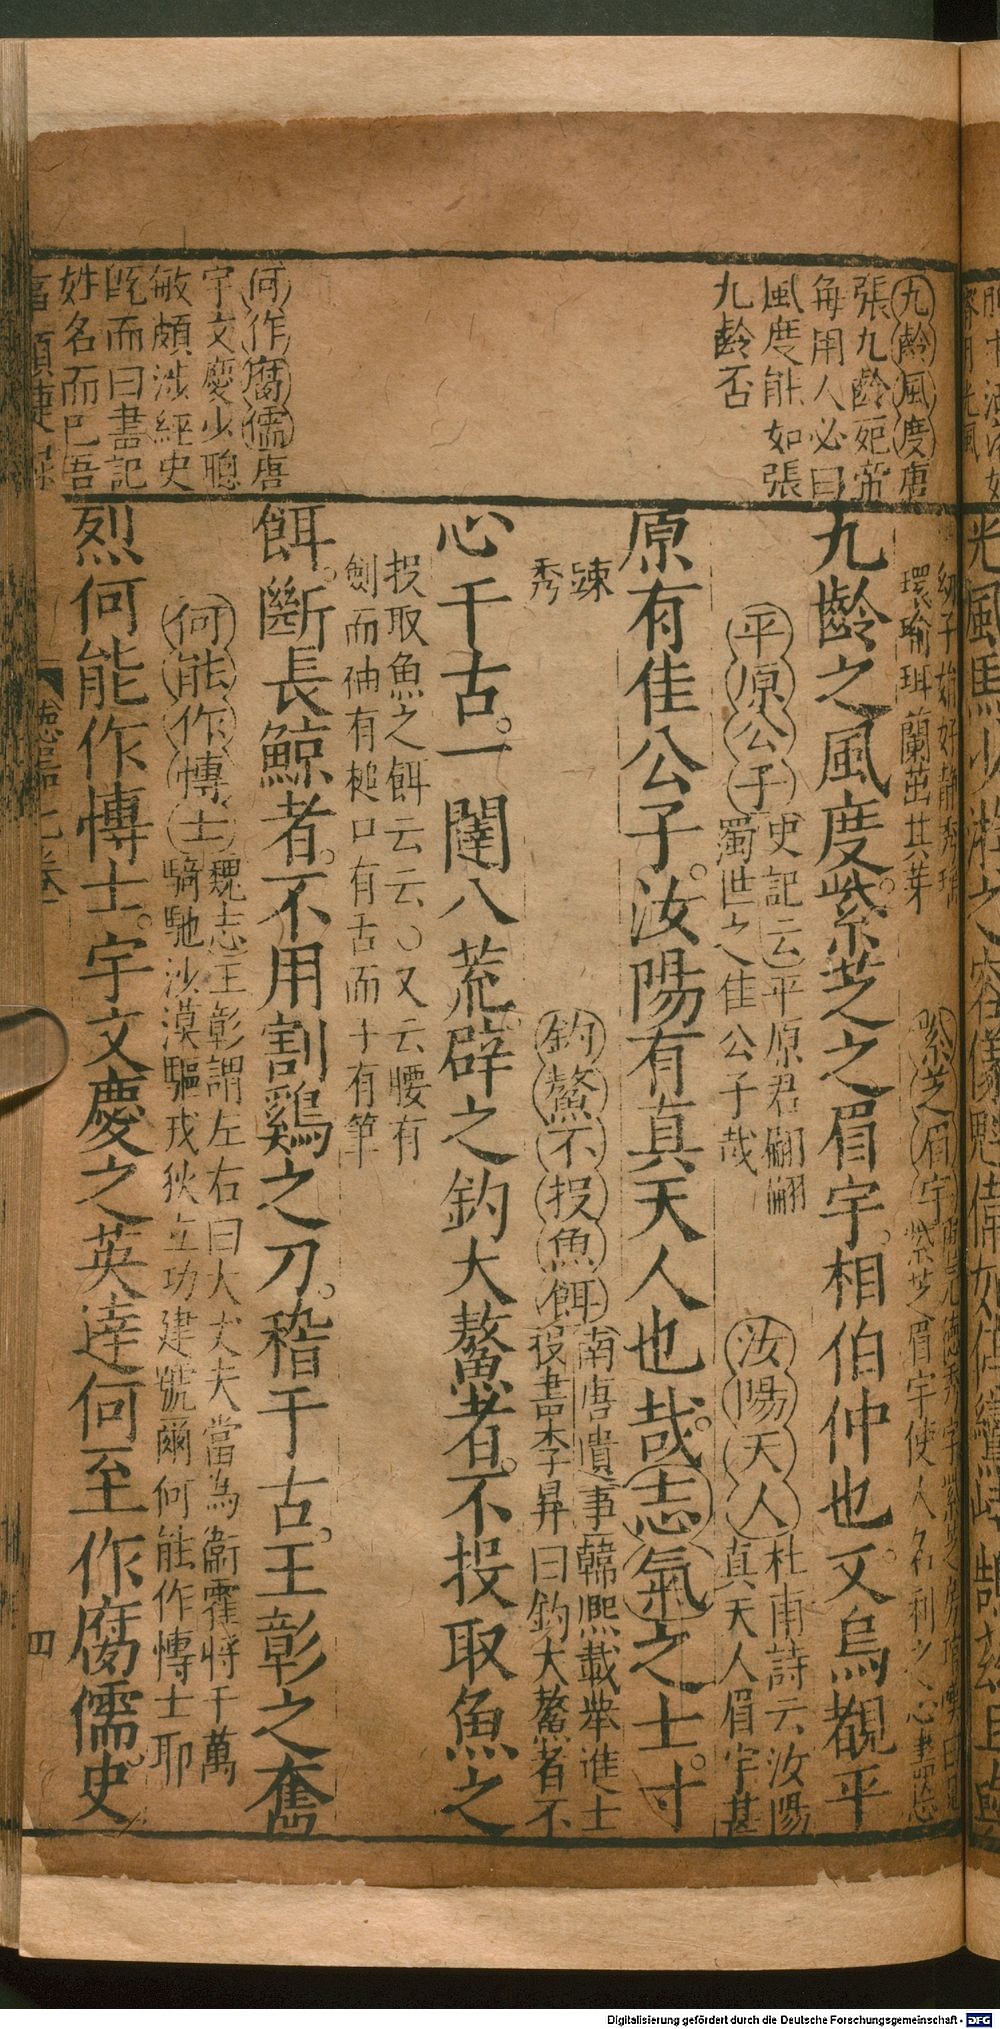 九齡風度唐
張九齡死帝
每用人必曰
風度能如張
九齡否
何作腐儒唐
宇文慶少聰
敏頗涉經史
既而曰書記
姓名而已吾
幼子始好靜秀
環瑜珥蘭茁其芽
紫芝眉宇
紫芝眉宇使人名利之心
九齡之風度紫芝之眉宇。相伯仲也。又烏覩平
平原公子史記云平原君翩翩
濁世之佳公子哉
汝陽天人杜甫詩云汝陽
真天人眉宇甚
原有佳公子。汝陽有真天人也哉。志氣之士。寸
踈
秀
釣鰲不投魚餌南唐遺事韓熙載舉進士
投書李昇曰釣大鰲者不
心千古。一闥八荒。辟之釣大鰲者。不投取魚之
投取魚之餌云云○又云腰有
劍而袖有槌口有舌而手有筆
餌。斷長鯨者。不用割鷄之刀。稽千古。王彰之奮
何能作博士魏志王彰謂左右曰大丈夫當為衛霍將十萬
騎馳沙漠驅戎狄立功建號爾何能作博士耶
烈何能作博士。宇文慶之英達何至作腐儒。史
四
Digitalisierung gefördert durch die Deutsche Forschungsgemeinschaft - DFG